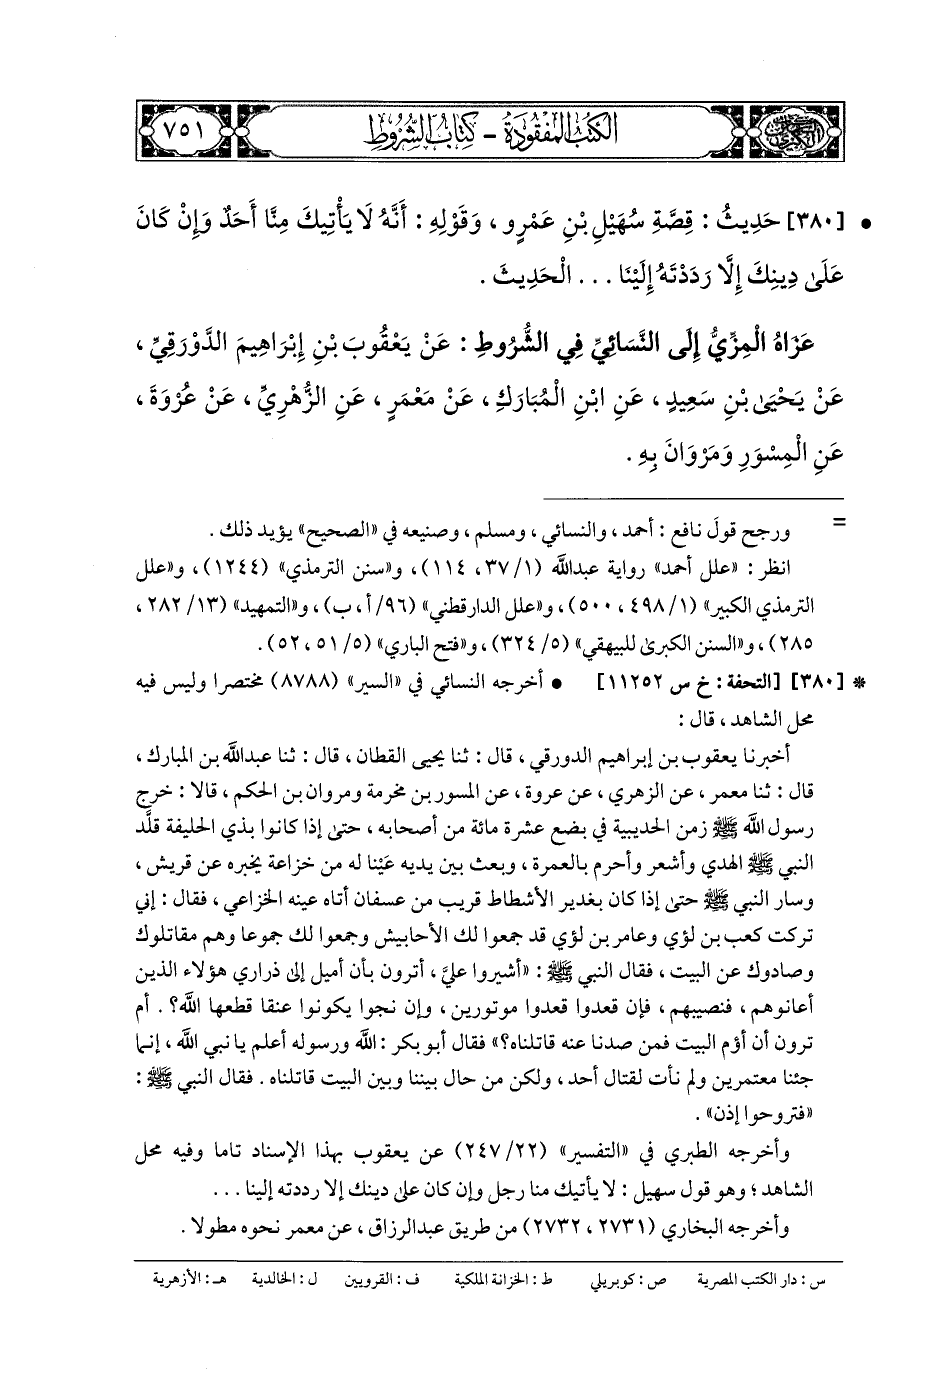 الكتب المفقودة - كتاب الشروط
٧٥١
• [٣٨٠] حَدِيثُ : قِصَّةِ سُهَيْلِ بْنِ عَمْرٍو ، وَقَوْلِهِ : أَنَّهُ لَا يَأْتِيكَ مِنَّا أَحَدٌ وَإِنْ كَانَ
عَلَىٰ دِينِكَ إِلَّا رَدَدْتَهُ إِلَيْنَا . . . الْحَدِيثَ .
عَزَاهُ الْمِزِّيُّ إِلَى النَّسَائِيِّ فِي الشُّرُوطِ : عَنْ يَعْقُوبَ بْنِ إِبْرَاهِيمَ الدَّوْرَقِيِّ ،
عَنْ يَحْيَىٰ بْنِ سَعِيدٍ ، عَنِ ابْنِ الْمُبَارَكِ ، عَنْ مَعْمَرٍ ، عَنِ الزُّهْرِيِّ ، عَنْ عُرْوَةَ ،
عَنِ الْمِسْوَرِ وَمَرْوَانَ بِهِ .
= ورجح قولَ نافع : أحمد ، والنسائي ، ومسلم ، وصنيعه في «الصحيح» يؤيد ذلك .
انظر : «علل أحمد» رواية عبدالله (١/ ٣٧، ١١٤)، و«سنن الترمذي» (١٢٤٤)، و«علل
الترمذي الكبير» (١/ ٤٩٨ ، ٥٠٠)، و«علل الدارقطني» (٩٦/ أ، ب)، و«التمهيد» (١٣/ ٢٨٢ ،
٢٨٥)، و«السنن الكبرىٰ للبيهقي» (٥/ ٣٢٤)، و«فتح الباري» (٥/ ٥١ ، ٥٢).
* [٣٨٠] [التحفة : خ س ١١٢٥٢] • أخرجه النسائي في «السير» (٨٧٨٨) مختصرا وليس فيه
محل الشاهد ، قال :
أخبرنا يعقوب بن إبراهيم الدورقي ، قال : ثنا يحيى القطان ، قال : ثنا عبدالله بن المبارك ،
قال : ثنا معمر ، عن الزهري ، عن عروة ، عن المسور بن مخرمة ومروان بن الحكم ، قالا : خرج
رسول الله ﷺ زمن الحديبية في بضع عشرة مائة من أصحابه ، حتىٰ إذا كانوا بذي الحليفة قلَّد
النبي ﷺ الهدي وأشعر وأحرم بالعمرة ، وبعث بين يديه عَيْنا له من خزاعة يخبره عن قريش ،
وسار النبي ﷺ حتىٰ إذا كان بغدير الأشطاط قريب من عسفان أتاه عينه الخزاعي ، فقال : إني
تركت كعب بن لؤي وعامر بن لؤي قد جمعوا لك الأحابيش وجمعوا لك جموعا وهم مقاتلوك
وصادوك عن البيت ، فقال النبي ﷺ : «أشيروا عليَّ ، أترون بأن أميل إلىٰ ذراري هؤلاء الذين
أعانوهم ، فنصيبهم ، فإن قعدوا قعدوا موتورين ، وإن نجوا يكونوا عنقا قطعها الله؟ . أم
ترون أن أؤم البيت فمن صدنا عنه قاتلناه؟» فقال أبو بكر : الله ورسوله أعلم يا نبي الله ، إنما
جئنا معتمرين ولم نأت لقتال أحد ، ولكن من حال بيننا وبين البيت قاتلناه . فقال النبي ﷺ :
«فتروحوا إذن» .
وأخرجه الطبري في «التفسير» (٢٢/ ٢٤٧) عن يعقوب بهذا الإسناد تاما وفيه محل
الشاهد ؛ وهو قول سهيل : لا يأتيك منا رجل وإن كان علىٰ دينك إلا رددته إلينا . . .
وأخرجه البخاري (٢٧٣١ ، ٢٧٣٢) من طريق عبدالرزاق ، عن معمر نحوه مطولا .
س : دار الكتب المصرية ص : كوبريلي ط : الخزانة الملكية ف : القرويين ل : الخالدية هـ : الأزهرية